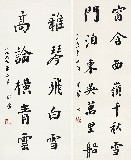 窗含西岭千秋雪
門泊東吳萬里船
雅琴飛白雪
高論橫青雲